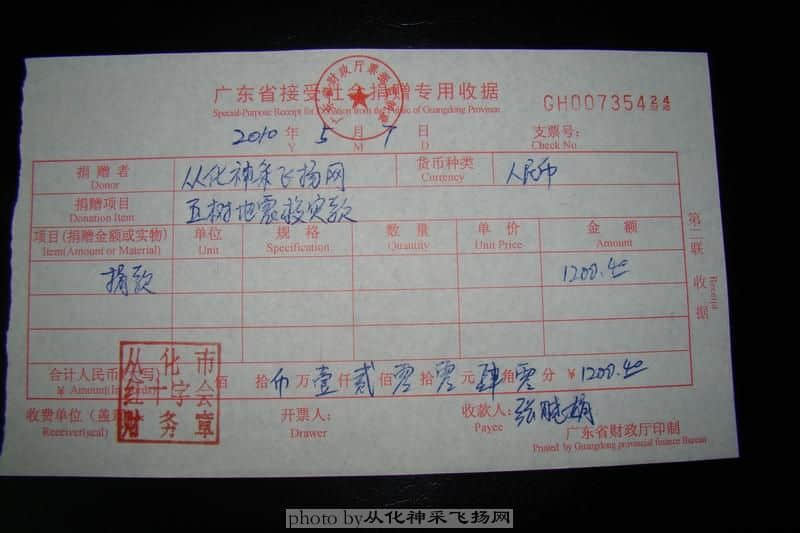 广东省接受社会捐赠专用收据
Special-Purpose Receipt for Donation from the Public of Guangdong Province
GH00735424
2010 年 5 月 7 日 支票号:
Y M D Check No.
捐赠者 从化神采飞扬网 货币种类 人民币
Donor Currency
捐赠项目 玉树地震救灾款
Donation Item
项目(捐赠金额或实物) 单位 规格 数量 单价 金额
Item(Amount or Material) Unit Specification Quantity Unit Price Amount
捐款 1200.40
第二联 收据
Receipt
合计人民币(大写) 佰 拾 万 壹 仟 贰 佰 零 拾 零 元 肆 角 零 分 ¥1200.40
¥ Amount(In words)
从化市
红十字会
财务章
收费单位(盖章) 开票人: 收款人:
Receiver(seal) Drawer Payee
广东省财政厅印制
Printed by Guangdong provincial finance Bureau
photo by从化神采飞扬网